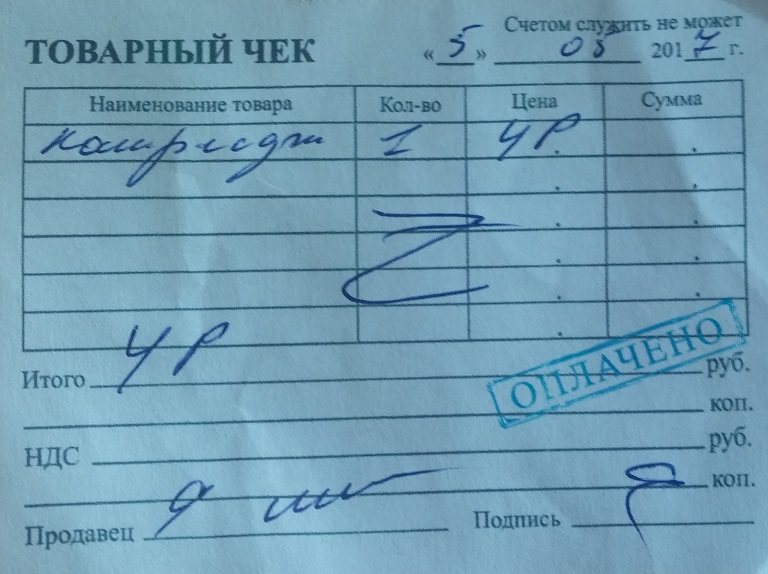 Счетом служить не может
ТОВАРНЫЙ ЧЕК «5» 05 2017 г.
Наименование товара Кол-во Цена Сумма
1 4 Р
4 Р
Итого руб.
ОПЛАЧЕНО
коп.
НДС руб.
коп.
Продавец Подпись